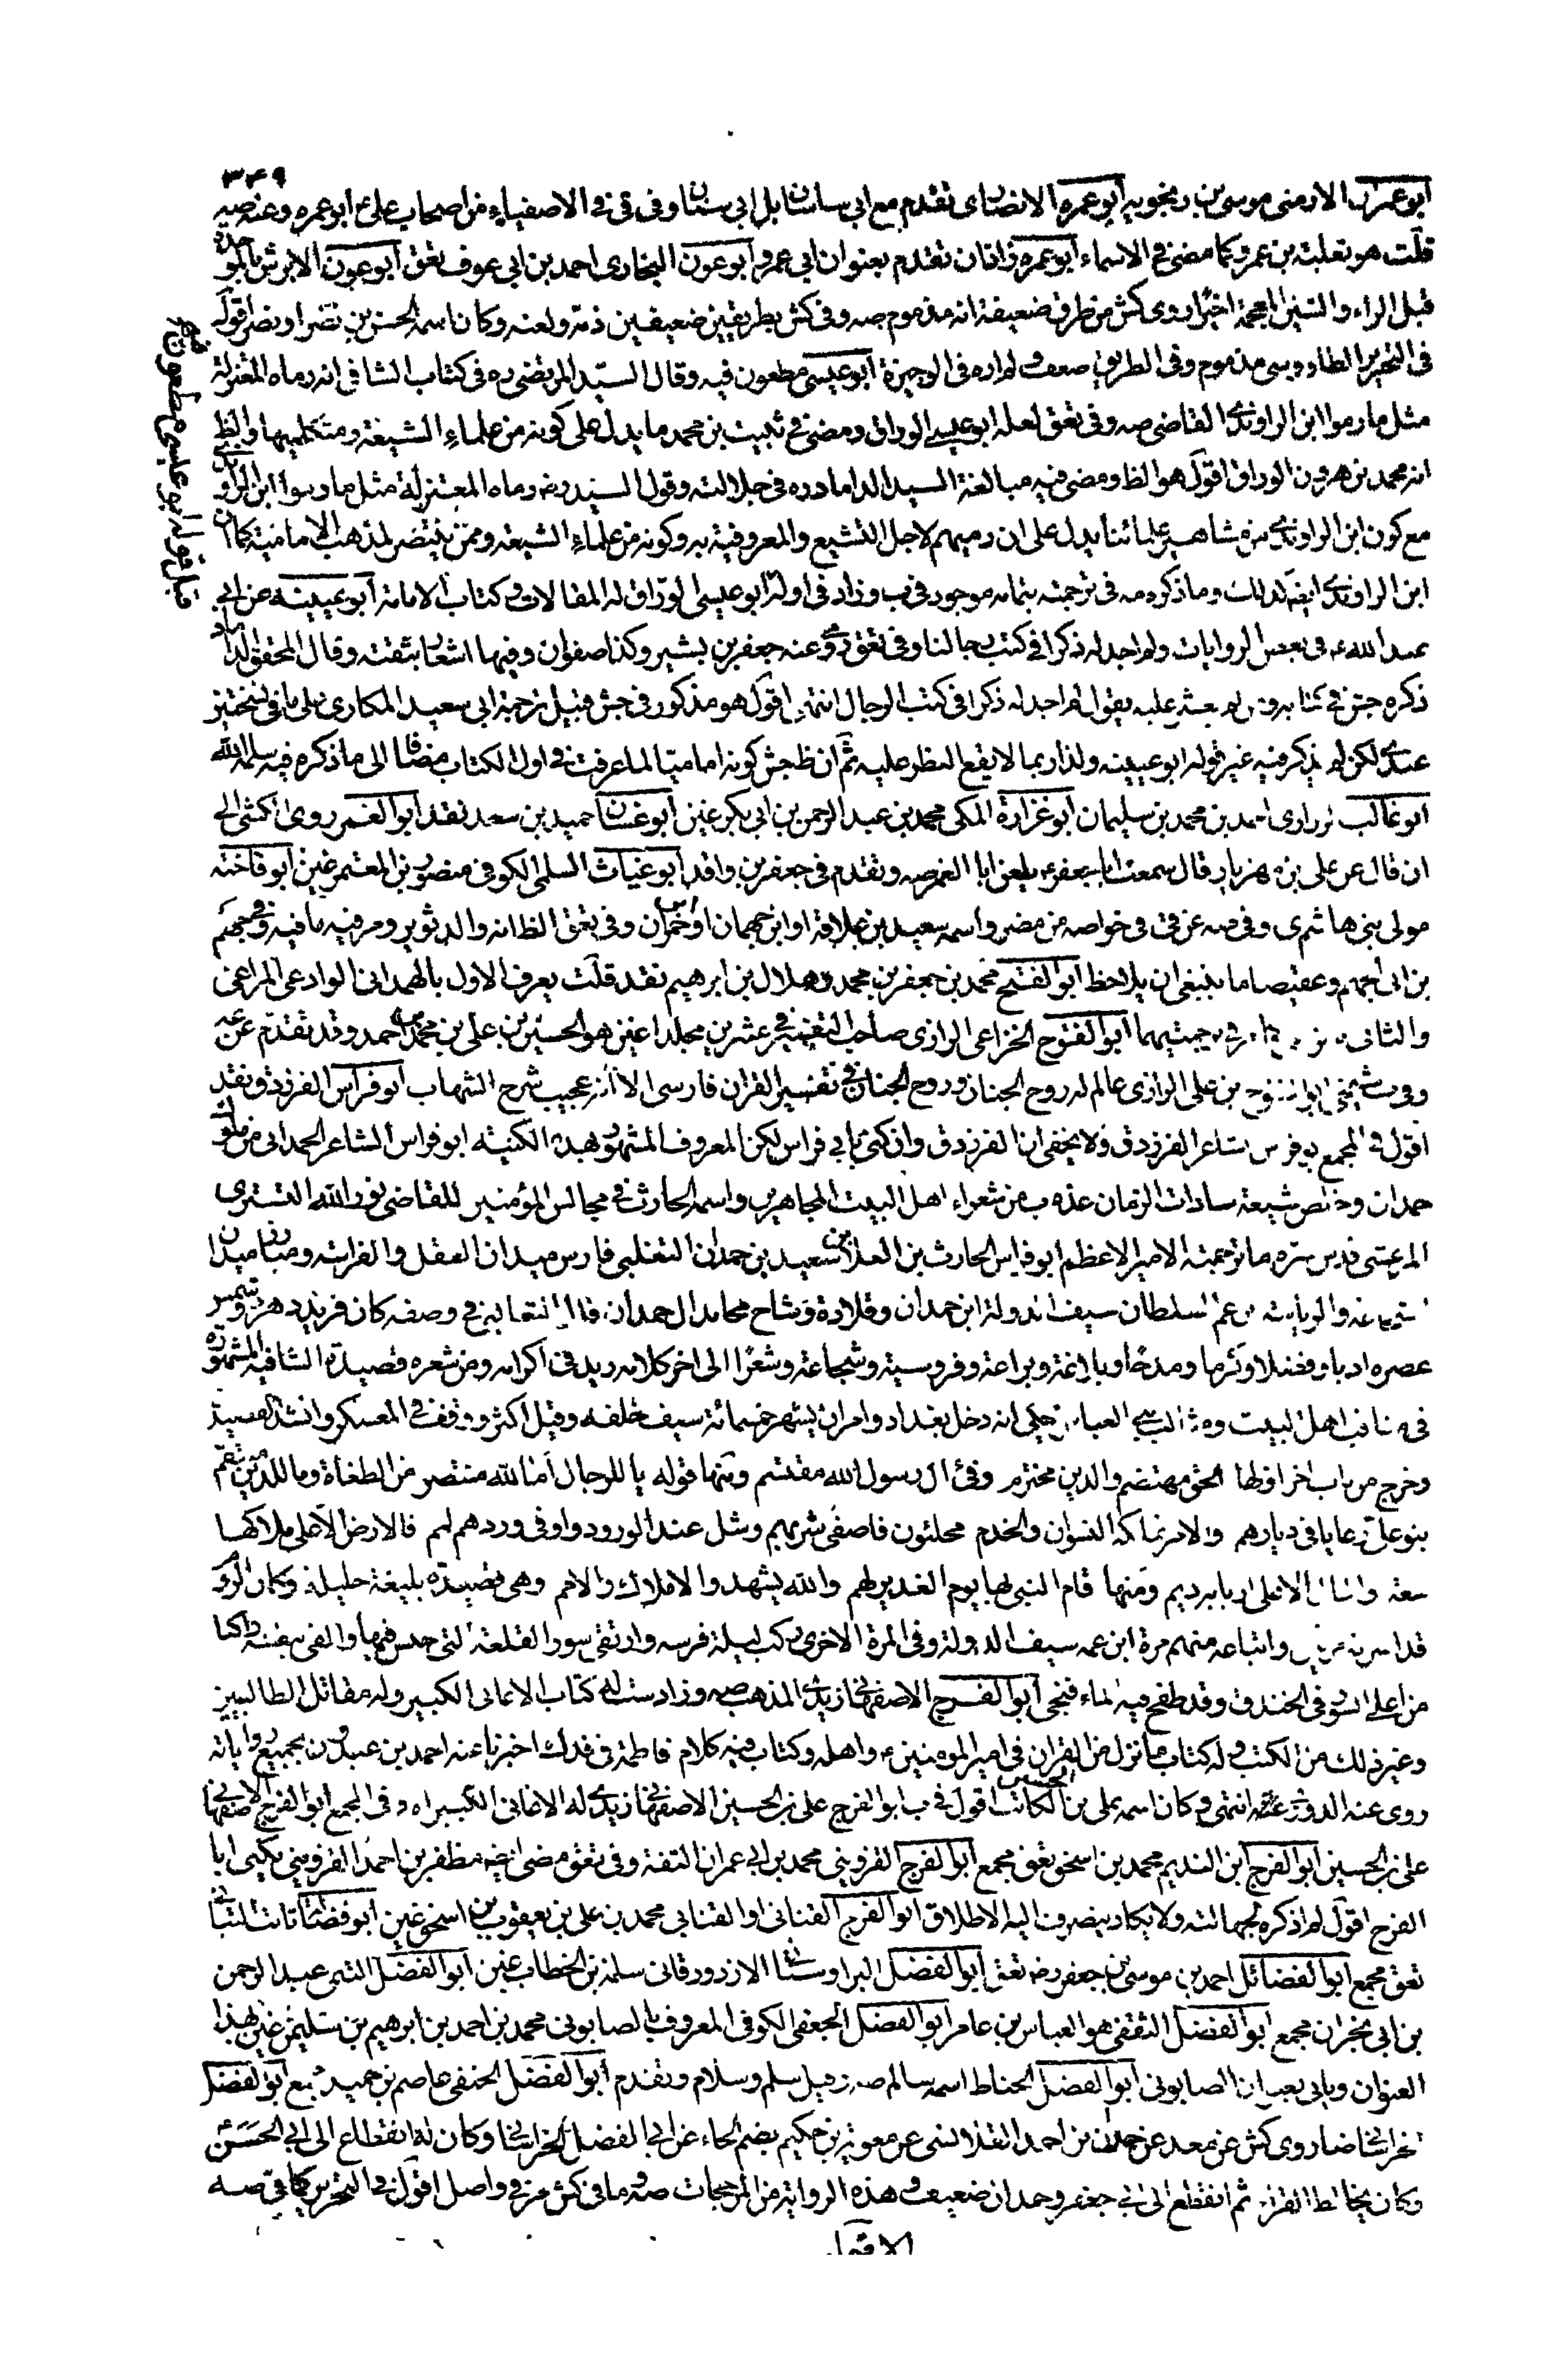 ٣٤٩
أبو عمران الارمنى موسى بن رنجويه أبو عمره الانصارى تقدم مع ابى ساسان بل ابى سنان وفى قى فى الاصفياء من اصحاب على ع أبو عمره وعنه صه
قلت هو ثعلبة بن عمرو كما مضى فى الاسماء أبو عمره زاذان تقدم بعنوان ابى عمرو أبو عون البخارى احمد بن ابى عوف تعق أبو عون الابرش
قبل الراء والشين المعجمة اخيرا روى كش من طرق ضعيفة انه مذموم صه وفى كش بطريقين ضعيفين ذمه ولعنه وكان اسمه الحسن بن نضر او نضر اقول
فى التحرير الطاووسى مذموم وفى الطريق ضعف ولم اره فى الوجيزة أبو عيسى مطعون فيه وقال السيد المرتضى ره فى كتاب الشافى انه رماه المعتزلة
مثل ما رموا ابن الراوندى القاضى صه وفى تعق لعله ابو عيسى الوراق ومضى فى ثبيت بن محمد ما يدل على كونه من علماء الشيعة ومتكلميها والظ
انه محمد بن هرون الوراق اقول هو الظ ومضى فيه مبالغة السيد الداماد ره فى جلالته وقول السيد رضه رماه المعتزلة مثل ما رموا ابن الراوندى
مع كون ابن الراوندى من مشاهير علمائنا يدل على ان رميهم لاجل التشيع والمعروفية به وكونه من علماء الشيعة وممن ينتصر لمذهب الامامية كما ان
ابن الراوندى ايضا كذلك وما ذكره مه فى ترجمته بتمامه موجود فى ب وزاد فى اوله ابو عيسى الوراق له المقالات وكتاب الامامة أبو عيينه عن ابى
عبد الله ع فى بعض الروايات ولم اجد له ذكرا فى كتب رجالنا وفى تعق وعنه جعفر بن بشير وكذا صفوان وفيهما اشعار بثقته وقال المحقق الداماد
ذكره جش فى كتابه ومن لم يعثر عليه يقول لم اجد له ذكرا فى كتب الرجال انتهى اقول هو مذكور فى جش قبيل ترجمة ابى سعيد المكارى على ما فى نسختين
عندى لكن لم يذكر فيه غير قوله ابو عيينه ولذا ربما لا يقع النظر عليه ثم ان ظ جش كونه اماميا لما عرفت فى اول الكتاب مضافا الى ما ذكره فيه سلمه الله
أبو غالب الزرارى احمد بن محمد بن سليمان أبو غزارة المكى محمد بن عبد الرحمن بن ابى بكر غين أبو غسان حميد بن سعد نقد أبو الغمر روى الكشى الى
ان قال عن على بن مهزيار قال سمعت ابا جعفر ع يلعن ابا الغمر صه وتقدم فى جعفر بن واقد أبو غياث السلمى الكوفى منصور بن المعتمر غين أبو فاخته
مولى بنى هاشم ى وفى صه عن قى فى خواصه من مضر واسمه سعيد بن علاقة او ابن جهمان او حمران وفى تعق الظ انه والد ثوير ومر فيه ما فيه وفى جهم
بن ابى جهم وعقيصا ما ينبغى ان يلاحظ أبو الفتح محمد بن جعفر بن محمد وهلال بن ابرهيم نقد قلت يعرف الاول بالهمدانى الوادعى المراغى
والثانى ترجمتيهما أبو الفتوح الخزاعى الرازى صاحب التفسير فى عشرين مجلدا غين هو الحسين بن على بن محمد بن احمد وقد تقدم عن عه
وفى ب شيخى ابو الفتوح بن على الرازى عالم له روح الجنان وروح الجنان فى تفسير القرآن فارسى الا انه عجيب شرح الشهاب أبو فراس الفرزدق ونقد
اقول فى المجمع ابو فراس شاعر الفرزدق ولا يخفى ان الفرزدق وان كنى بابى فراس لكن المعروف المشهور بهذه الكنيه ابو فراس الشاعر الحمدانى من ملوك
حمدان وخلص شيعة سادات الزمان عده ب من شعراء اهل البيت المجاهرين واسمه الحارث فى مجالس المؤمنين للقاضى نور الله التسترى
المرعشى قدس سره ما ترجمته الامير الاعظم ابو فراس الحارث بن العلا بن سعيد بن حمدان التغلبى فارس ميدان العقل والفراسة ومبارز ميدان
الشجاعة والرياسة ابن عم السلطان سيف الدولة ابن حمدان وقلادة وشاح محامد ال حمدان قال الثعالبى فى وصفه كان فريد دهره وشمس
عصره ادبا وفضلا وكرما ومدحا وبلاغة وبراعة وفروسية وشجاعة وشعرا الى اخر كلامه زيد فى اكرامه ومن شعره قصيدته الشافيه المشهوره
فى مناقب اهل البيت ومثالب بنى العباس حكى انه دخل بغداد وامر ان يشهر خمسمائة سيف خلفه وقيل اكثر ووقف فى المعسكر وانشد القصيدة
وخرج من باب اخر اولها الحق مهتضم والدين مخترم وفئ ال رسول الله مقتسم ومنها قوله يا للرجال اما لله منتصر من الطغاة وما للدين منتقم
بنو على رعايا فى ديارهم والامر تملكه النسوان والخدم محلئون فاصفى شربهم وشل عند الورود واوفى وردهم لمم فالارض الا على ملاكها
سعة والمال الا على اربابه ديم ومنها قام النبى لها يوم الغدير لهم والله يشهد والاملاك والامم وهى قصيدة بليغة جليلة وكان الروم
قد اسرته مرتين وانتاعه منهم مرة ابن عمه سيف الدولة وفى المرة الاخرى ركب ليلة فرسه وارتقى سور القلعة التى حبس فيها والقى بنفسه راكبا
من اعلى السور فى الخندق وقد طفح فيه الماء فنجى أبو الفرج الاصفهانى زيدى المذهب صه وزاد ست له كتاب الاغانى الكبير وله مقاتل الطالبيين
وغير ذلك من الكتب وله كتاب ما نزل من القرآن فى امير المومنين ع واهله وكتاب فيه كلام فاطمة فى فدك اخبرنا عنه احمد بن عبدون بجميع رواياته
روى عنه الدورى عنه انتهى وكان اسمه على بن الحسين الكاتب اقول فى ب ابو الفرج على بن الحسين الاصفهانى زيدى له الاغانى الكبير اه وفى المجمع ابو الفرج الاصفهانى
على بن الحسين أبو الفرج ابن النديم محمد بن اسحق تعق مجمع أبو الفرج القزوينى محمد بن ابى عمران الثقة وفى تعق مضى ايضا مظفر بن احمد القزوينى يكنى ابا
الفرج اقول لم اذكره لجهالته ولا يكاد ينصرف اليه الاطلاق أبو الفرج القنانى او القنابى محمد بن على بن يعقوب بن اسحق غين أبو فضالة ثابت البنانى
تعق مجمع أبو الفضائل احمد بن موسى بن جعفر رضه تعق أبو الفضل البراوستانى الازدورقانى سلمة بن الخطاب غين أبو الفضل التيمى عبد الرحمن
بن ابى نجران مجمع أبو الفضل الثقفى هو العباس بن عامر أبو الفضل الجعفى الكوفى المعروف بالصابونى محمد بن احمد بن ابرهيم بن سليم غين بهذا
العنوان وياتى بعنوان الصابونى أبو الفضل الحناط اسمه سالم صه وقيل سلم وسلام وتقدم أبو الفضل الحنفى عاصم بن حميد مجمع أبو الفضل
الخراسانى ضا روى كش عن معد عن حمدان بن احمد القلانسى عن معويه بن حكيم بضم الحاء عن ابى الفضل الخراسانى وكان له انقطاع الى ابى الحسن
وكان يخالط القراء ثم انقطع الى ابى جعفر وحمدان ضعيف وهذه الرواية من المرجحات صه وما فى كش مر فى واصل اقول فى التحرير كما فى صه
الا قوله
قبل قوله ابو عيسى مطعون